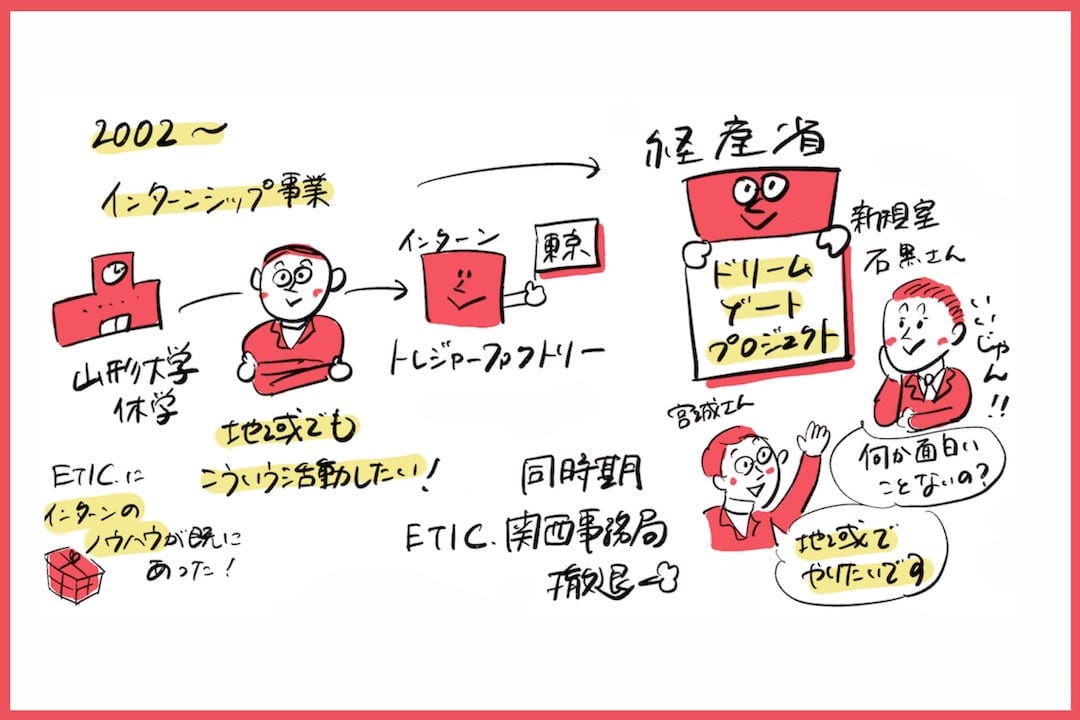 2002〜
インターンシップ事業
山形大学
休学
地域でも
こういう活動したい!
ETIC.に
インターンの
ノウハウが既に
あった!
インターン
東京
トレジャーファクトリー
同時期
ETIC.関西事務局
撤退
経産省
ドリーム
ゲート
プロジェクト
新規室
石黒さん
いいじゃん!!
何か面白い
ことないの?
宮城さん
地域で
やりたいです